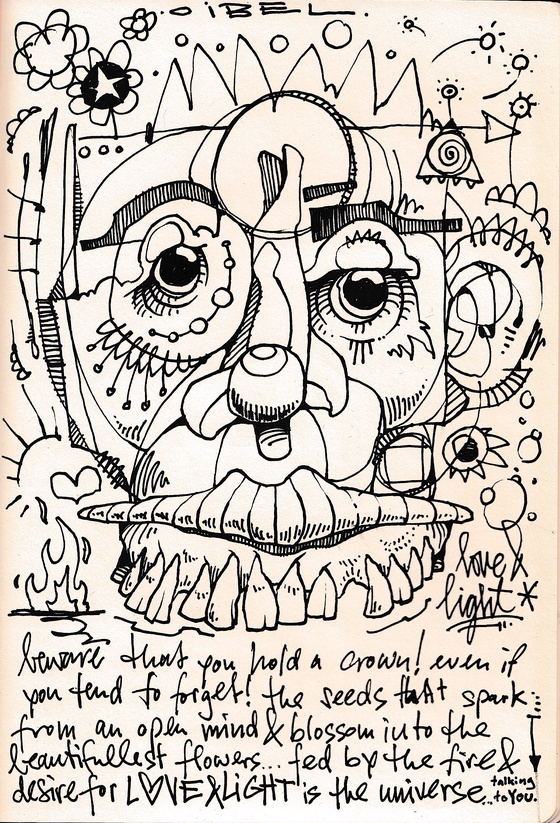 OiBEL.
love &
light *
beware that you hold a crown! even if
you tend to forget! the seeds that spark...
from an open mind & blossom into the
beautifullest flowers... fed by the fire &
desire for L♡VE & LiGHT is the universe...talking
to You.